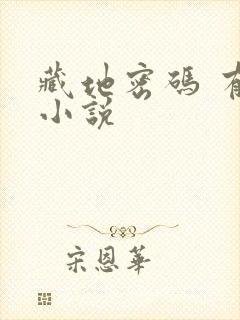 藏地密碼 有
小說
宋恩華